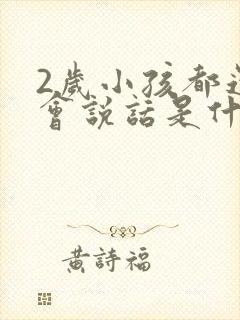 2歲小孩都
會說話是什
黃詩福